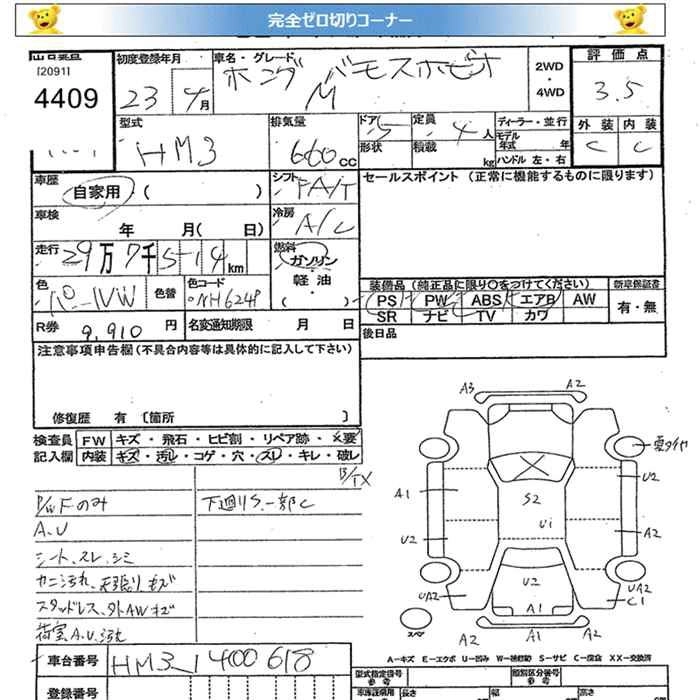 完全ゼロ切りコーナー
[2091]
4409
初度登録年月
23 4月
車名・グレード
ホンダ バモスホビオ
M
2WD
・
4WD
評価点
3.5
外装 内装
C C
型式
HM3
排気量
660cc
ドア 5
形状
定員 4人
積載 kg
ディーラー・並行
モデル年式 年
ハンドル 左・右
車歴
自家用 ( )
シフト
FA/T
セールスポイント (正常に機能するものに限ります)
車検
年 月( 日)
冷房
A/C
走行
29万7千514km
燃料
ガソリン
軽油・
( )
色
色替
色コード
NH624P
装備品 (純正品に限り○をつけてください)
PS PW ABS エアB AW
SR ナビ TV カワ
新車保証書
有・無
R券
9,910 円
名変通知期限 月 日
後日品
注意事項申告欄 (不具合内容等は具体的に記入して下さい)
修復歴 有 〔箇所 〕
検査員
記入欄
FW キズ・飛石・ヒビ割・リペア跡・X要
内装 キズ・汚れ・コゲ・穴・スレ・キレ・破レ
P/W Fのみ
下廻りS、一部C
A.U
シート、スレ、シミ
内ニ汚れ、天張りキズ
スタッドレス、外AWキズ
荷室A.U、汚れ
A3 A2
夏タイヤ
A1 U2
S2
U1
U2 A2
U2
UA2 UA2
A1 C1
スペア
A2 A1 A2
A−キズ E−エクボ U−凹み W−補修跡 S−サビ C−腐食 XX−交換済
車台番号
HM3-1400618
登録番号
型式指定番号
参考
類別区分番号
参考
長さ 幅 高さ